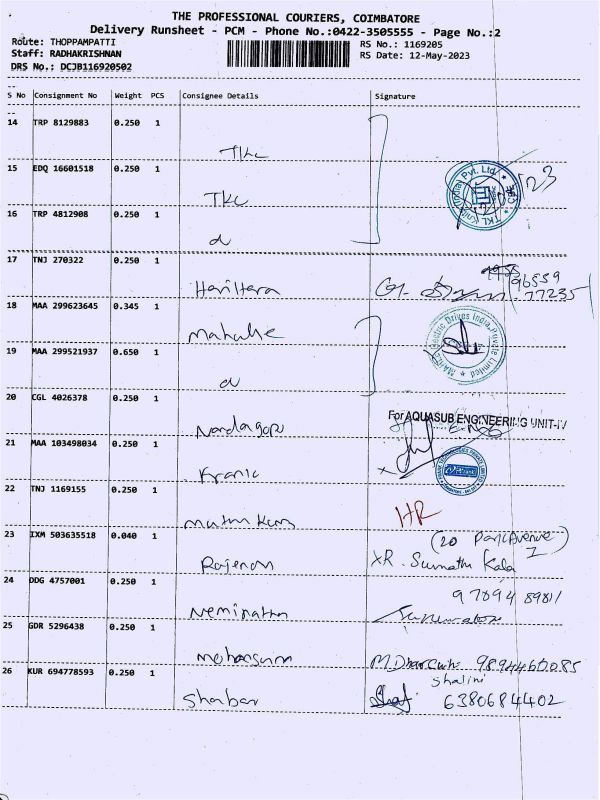 THE PROFESSIONAL COURIERS, COIMBATORE
Delivery Runsheet - PCM - Phone No.:0422-3505555 - Page No.:2
Route: THOPPAMPATTI
Staff: RADHAKRISHNAN
DRS No.: DCJB116920502
RS No.: 1169205
RS Date: 12-May-2023
S No Consignment No Weight PCS Consignee Details Signature
14 TRP 8129883 0.250 1
TKC
15 EDQ 16601518 0.250 1
TKC
16 TRP 4812908 0.250 1
17 TNJ 270322 0.250 1
Harihara
96559
77235
18 MAA 299623645 0.345 1
Mahalle
19 MAA 299521937 0.650 1
20 CGL 4026378 0.250 1
For AQUASUB ENGINEERING UNIT-IV
Nandagopu
21 MAA 103498034 0.250 1
22 TNJ 1169155 0.250 1
HR
23 IXM 503635518 0.040 1
(20 Park Avenue)
Rajenan
XR. Sumathi Kala
24 DDG 4757001 0.250 1
97894 89811
25 GDR 5296438 0.250 1
9894460085
26 KUR 694778593 0.250 1
Shalini
6380684402